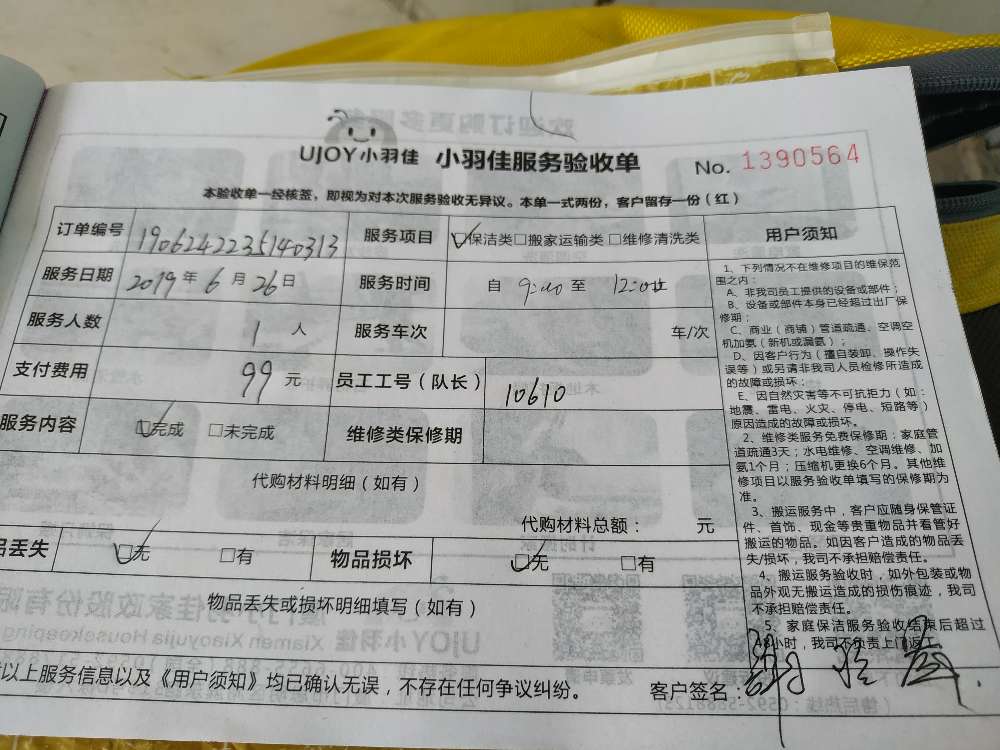 UJOY小羽佳 小羽佳服务验收单 No. 1390564
本验收单一经核签，即视为对本次服务验收无异议。本单一式两份，客户留存一份（红）
订单编号 1906242235140313 服务项目 保洁类 搬家运输类 维修清洗类
服务日期 2019年6月26日 服务时间 自 9:00 至 12:00止
服务人数 1 人 服务车次 车/次
支付费用 99 元 员工工号（队长） 10610
服务内容 完成 未完成 维修类保修期
代购材料明细（如有）
代购材料总额： 元
品丢失 无 有 物品损坏 无 有
物品丢失或损坏明细填写（如有）
以上服务信息以及《用户须知》均已确认无误，不存在任何争议纠纷。 客户签名：
用户须知
1、下列情况不在维修项目的维保范
围之内：
A、非我司员工提供的设备或部件；
B、设备或部件本身已经超过出厂保
修期；
C、商业（商铺）管道疏通、空调空
机加氨（新机或漏氨）；
D、因客户行为（擅自装卸、操作失
误等）或另请非我司人员检修所造成
的故障或损坏；
E、因自然灾害等不可抗拒力（如：
地震、雷电、火灾、停电、短路等）
原因造成的故障或损坏。
2、维修类服务免费保修期：家庭管
道疏通3天；水电维修、空调维修、加
氨1个月；压缩机更换6个月。其他维
修项目以服务验收单填写的保修期为
准。
3、搬运服务中，客户应随身保管证
件、首饰、现金等贵重物品并看管好
搬运的物品。如因客户造成的物品丢
失/损坏，我司不承担赔偿责任。
4、搬运服务验收时，如外包装或物
品外观无搬运造成的损伤痕迹，我司
不承担赔偿责任。
5、家庭保洁服务验收结束后超过
48小时，我司不负责上门返工。